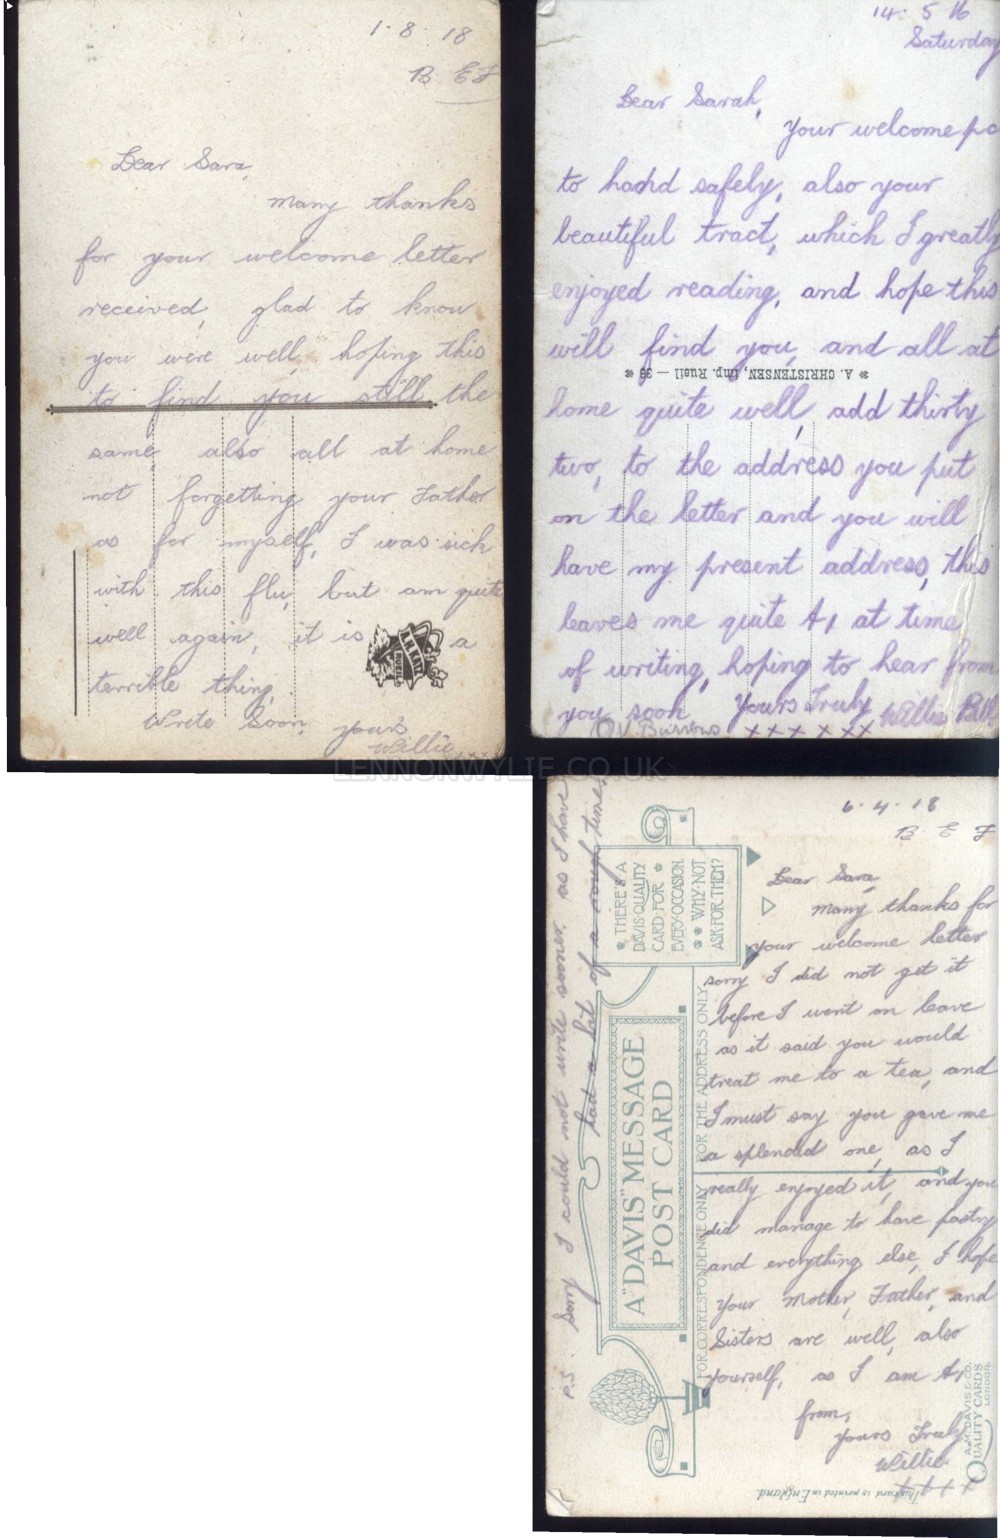 1 - 8 - 18
B E F
Dear Sara,
Many thanks
for your welcome letter
received, glad to know
you were well, hoping this
to find you still the
same also all at home
not forgetting your Father
as for myself, I was sick
with this flu, but am quite
well again, it is a
terrible thing.
Write Soon, yours
Willie
14 . 5 16
Saturday
Dear Sarah,
Your welcome pc
to hachd safely, also your
beautiful tract, which I greatly
enjoyed reading, and hope this
will find you, and all at
* A. CHRISTENSEN, Imp. Rueil — 38 *
home quite well, add thirty
two, to the address you put
on the letter and you will
have my present address, this
leaves me quite A1 at time
of writing, hoping to hear from
you soon Yours Truly Willie Bell
V. Burrows x x x x x x
LENNONWYLIE.CO.UK
6 - 4 - 18
B E F
Dear Sara,
Many thanks for
your welcome letter
sorry I did not get it
before I went on leave
as it said you would
treat me to a tea, and
I must say you gave me
a splendid one, as I
really enjoyed it, and you
did manage to have pastry
and everything else, I hope
your Mother, Father, and
Sisters are well, also
yourself, as I am A1
from,
yours Truly
Willie
x x x x
P.S. Sorry I could not write sooner, as I have
had a bit of a rough time.
THERE'S A
DAVIS·QUALITY
CARD·FOR
EVERY·OCCASION.
WHY·NOT
ASK FOR THEM?
A "DAVIS" MESSAGE
POST CARD
FOR CORRESPONDENCE ONLY
FOR THE ADDRESS ONLY
A.M. DAVIS & CO.
QUALITY CARDS
LONDON.
This card is printed in England.